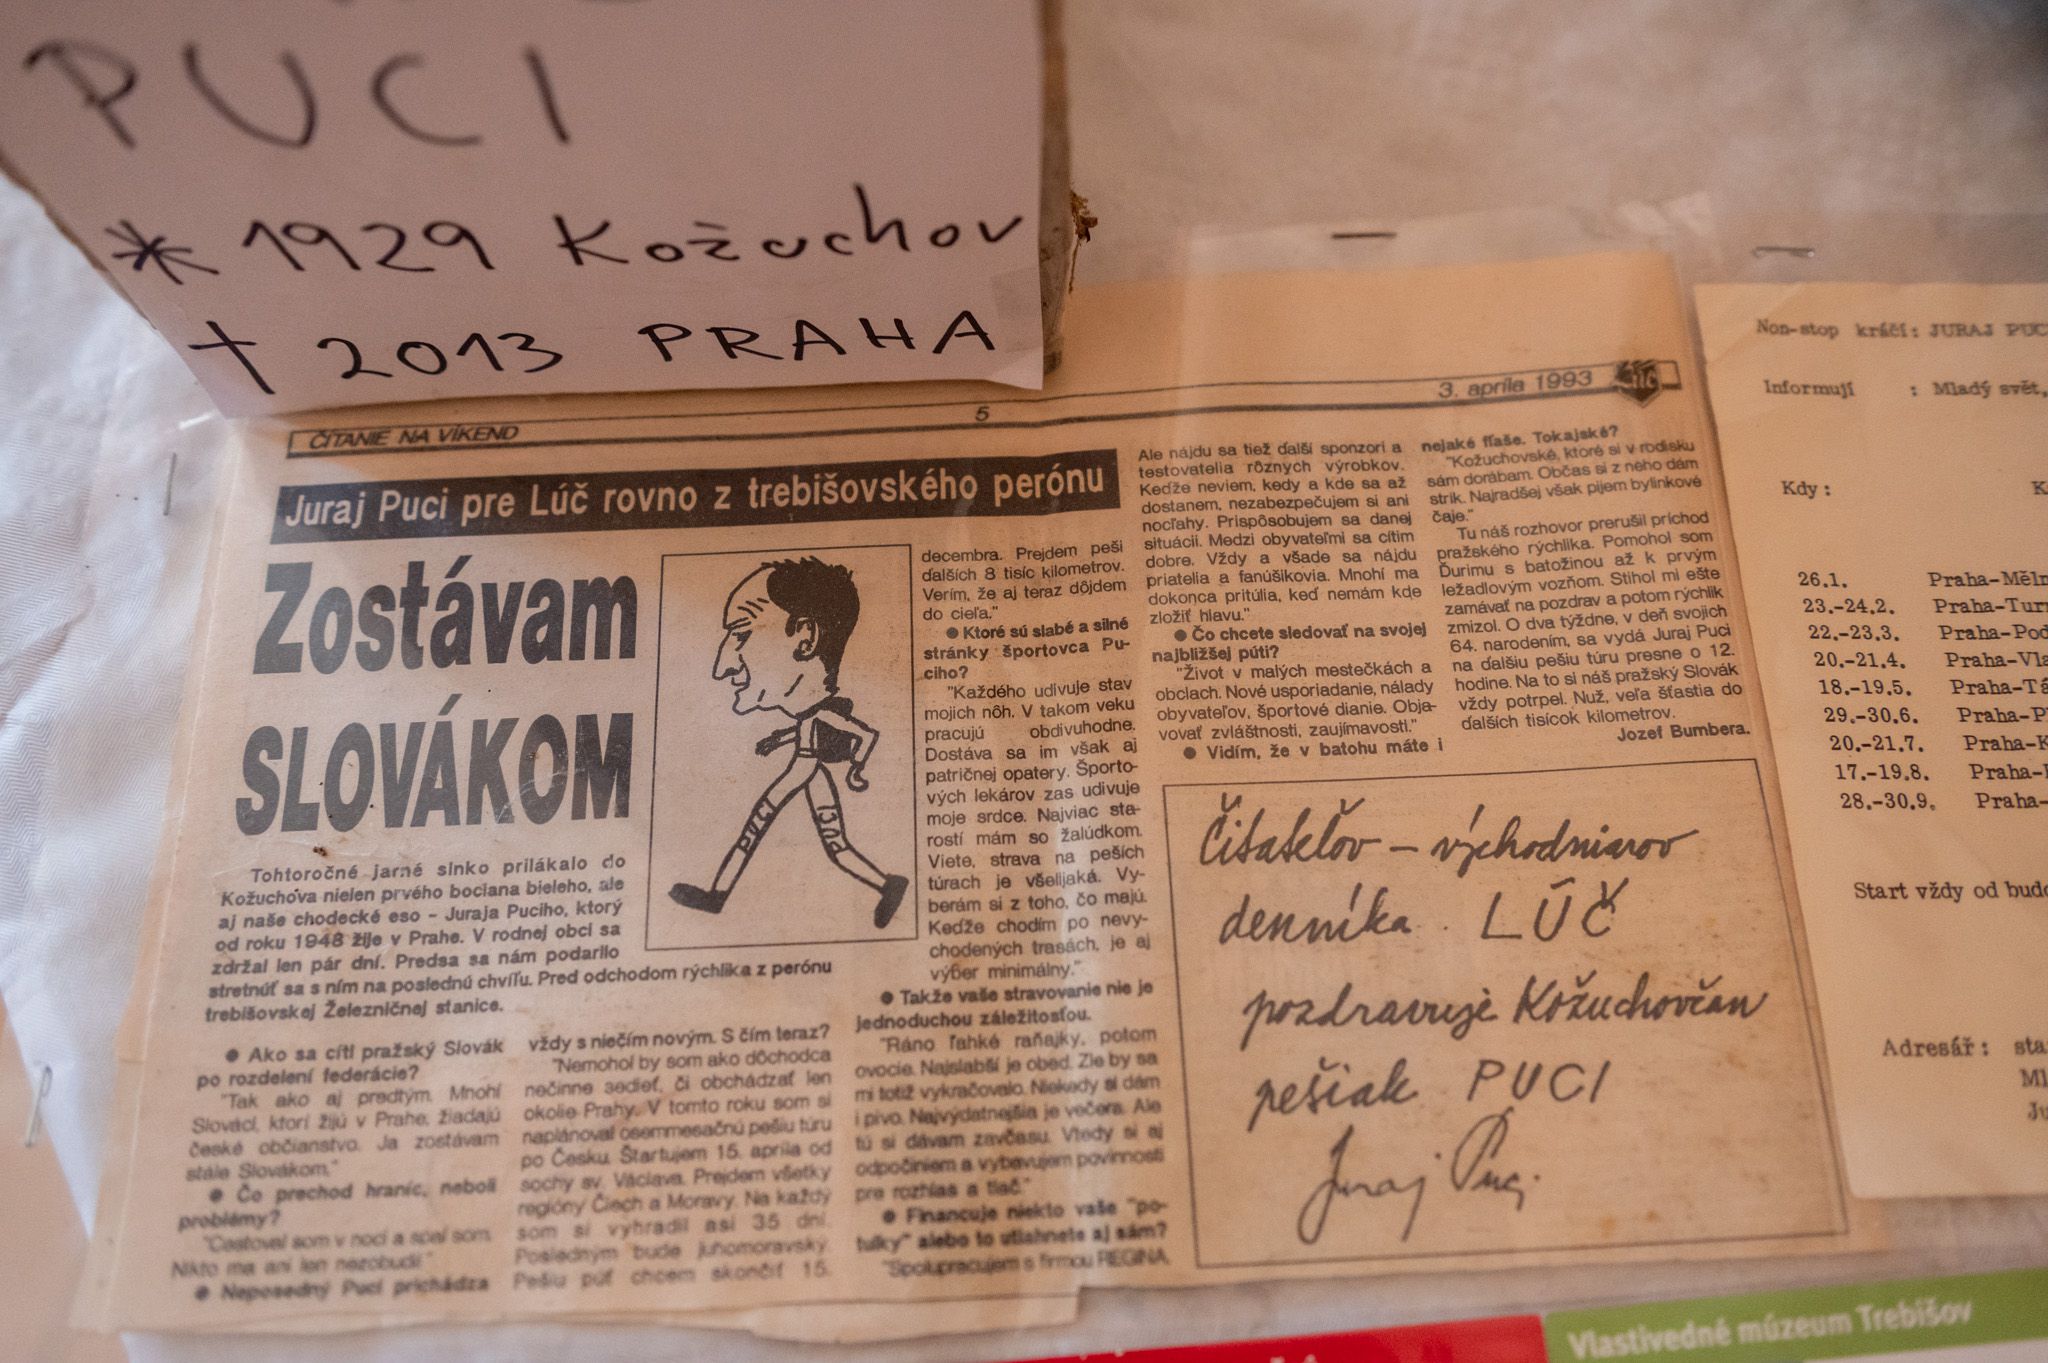 PUCI
* 1929 Kožuchov
† 2013 PRAHA
ČÍTANIE NA VÍKEND
5
3. apríla 1993
Juraj Puci pre Lúč rovno z trebišovského perónu
Zostávam
SLOVÁKOM
Tohtoročné jarné slnko prilákalo do
Kožuchova nielen prvého bociana bieleho, ale
aj naše chodecké eso – Juraja Puciho, ktorý
od roku 1948 žije v Prahe. V rodnej obci sa
zdržal len pár dní. Predsa sa nám podarilo
stretnúť sa s ním na poslednú chvíľu. Pred odchodom rýchlika z perónu
trebišovskej Železničnej stanice.
● Ako sa cíti pražský Slovák
po rozdelení federácie?
"Tak ako aj predtým. Mnohí
Slováci, ktorí žijú v Prahe, žiadajú
české občianstvo. Ja zostávam
stále Slovákom."
● Čo prechod hraníc, neboli
problémy?
"Cestoval som v noci a spal som.
Nikto ma ani len nezobudil."
● Neposedný Puci prichádza
vždy s niečím novým. S čím teraz?
"Nemohol by som ako dôchodca
nečinne sedieť, či obchádzať len
okolie Prahy. V tomto roku som si
naplánoval osemmesačnú pešiu túru
po Česku. Štartujem 15. apríla od
sochy sv. Václava. Prejdem všetky
regióny Čiech a Moravy. Na každý
som si vyhradil asi 35 dní.
Posledným bude juhomoravský.
Pešiu púť chcem skončiť 15.
PUCI
PUCI
decembra. Prejdem peši
ďalších 8 tisíc kilometrov.
Verím, že aj teraz dôjdem
do cieľa."
● Ktoré sú slabé a silné
stránky športovca Pu-
ciho?
"Každého udivuje stav
mojich nôh. V takom veku
pracujú obdivuhodne.
Dostáva sa im však aj
patričnej opatery. Športo-
vých lekárov zas udivuje
moje srdce. Najviac sta-
rostí mám so žalúdkom.
Viete, strava na peších
túrach je všelijaká. Vy-
berám si z toho, čo majú.
Keďže chodím po nevy-
chodených trasách, je aj
výber minimálny."
● Takže vaše stravovanie nie je
jednoduchou záležitosťou.
"Ráno ľahké raňajky, potom
ovocie. Najslabší je obed. Zle by sa
mi totiž vykračovalo. Niekedy si dám
i pivo. Najvýdatnejšia je večera. Ale
tú si dávam zavčasu. Vtedy si aj
odpočiniem a vybavujem povinnosti
pre rozhlas a tlač."
● Financuje niekto vaše "po-
tulky" alebo to utiahnete aj sám?
"Spolupracujem s firmou REGINA.
Ale nájdu sa tiež ďalší sponzori a
testovatelia rôznych výrobkov.
Keďže neviem, kedy a kde sa až
dostanem, nezabezpečujem si ani
nocľahy. Prispôsobujem sa danej
situácii. Medzi obyvateľmi sa cítim
dobre. Vždy a všade sa nájdu
priatelia a fanúšikovia. Mnohí ma
dokonca pritúlia, keď nemám kde
zložiť hlavu."
● Čo chcete sledovať na svojej
najbližšej púti?
"Život v malých mestečkách a
obciach. Nové usporiadanie, nálady
obyvateľov, športové dianie. Obja-
vovať zvláštnosti, zaujímavosti."
● Vidím, že v batohu máte i
nejaké fľaše. Tokajské?
"Kožuchovské, ktoré si v rodisku
sám dorábam. Občas si z neho dám
strik. Najradšej však pijem bylinkové
čaje."
Tu náš rozhovor prerušil príchod
pražského rýchlika. Pomohol som
Ďurimu s batožinou až k prvým
ležadlovým vozňom. Stihol mi ešte
zamávať na pozdrav a potom rýchlik
zmizol. O dva týždne, v deň svojich
64. narodením, sa vydá Juraj Puci
na ďalšiu pešiu túru presne o 12.
hodine. Na to si náš pražský Slovák
vždy potrpel. Nuž, veľa šťastia do
ďalších tisícok kilometrov.
Jozef Bumbera.
Čitateľov – východniarov
denníka LÚČ
pozdravuje Kožuchovčan
pešiak PUCI
Juraj Puci
Non-stop kráčí: JURAJ PUC
Informují : Mladý svět,
Kdy :
26.1. Praha-Měln
23.-24.2. Praha-Turn
22.-23.3. Praha-Pod
20.-21.4. Praha-Vla
18.-19.5. Praha-Tá
29.-30.6. Praha-P
20.-21.7. Praha-K
17.-19.8. Praha-
28.-30.9. Praha-
Start vždy od budo
Adresář : sta
Ml
Ju
Vlastivedné múzeum Trebišov